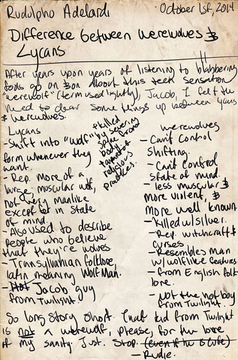 Rudolpho Adelardi
October 1st, 2014
Difference between werewolves &
Lycans
After years upon years of listening to blubbering
fools go on & on about this teen sensation
"werewolf" (term used lightly), Jacob, I felt the
need to clear some things up between lycans
& werewolves.
Lycans
- Shift into "wolf"
form whenever they
want.
- Rep. more of a
large, muscular wolf,
not very manlike
except for in state
of mind.
- Also used to describe
people who believe
that they're wolves
- Transylvanian folklore
latin meaning Wolf Man.
- Hot Jacob guy
from Twilight
* killed
by severing
spinal
cord
* taught
religious
practices
werewolves
- Can't control
shifting.
- Can't control
state of mind.
- less muscular &
more violent, &
more well known
- killed w/ silver.
- Rep witchcraft &
curses
- Resembles man
w/ wolflike features
- from English folk
lore.
- not the hot boy
from Twilight
So long story short. That kid from Twilight
is not a werewolf, please, for the love
of my sanity just. Stop. (even if he is cute)
- Rudie